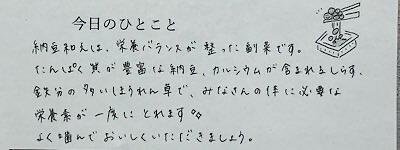 今日のひとこと
納豆和えは、栄養バランスが整った副菜です。
たんぱく質が豊富な納豆、カルシウムが含まれるしらす、
鉄分の多いほうれん草で、みなさんの体に必要な
栄養素が一度にとれます
よく噛んでおいしくいただきましょう。